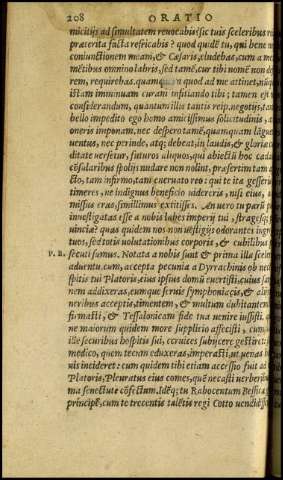 208 ORATIO
micitijs ad simultatem reuocabis: sic tuis sceleribus r
praeterita facta refricabis? quod quidẽ tu, qui bene n
coniunctionem meam, & Caesaris, eludebas, cum a me
mẽtibus omnino labris, sed tamẽ, cur tibi nomẽ non de
rem, requirebas. quanquam quod ad me attinet, nũq
istam imminuam curam infitiando tibi; tamen est
considerandum, quantum illi tantis reip. negotijs, tan
bello impedito ego homo amicissimus sollicitudinis, a
oneris imponam. nec despero tamẽ, quanquam lãgue
uentus, nec perinde, atq; debeat, in laudis, & gloriae
ditate uersetur, futuros aliquos, qui abiectũ hoc cada
cõsularibus spolijs nudare non nolint, praesertim tam
cto, tam infirmo, tam eneruato reo: qui te ita gesseri
timeres, ne indignus beneficio uiderere, nisi eius, a
missus eras, simillimus extitisses. An uero tu parũ pu
inuestigatas esse a nobis labes imperij tui, stragesq;
uinciae? quas quidem nos non uestigijs odorantes ingr
tuos, sed totis uolutationibus corporis, & cubilibus
P. R. secuti sumus. Notata a nobis sunt & prima illa sceler
aduentu. cum, accepta pecunia a Dyrrachinis ob nec
spitis tui Platoris, eius ipsius domũ euertisti, cuius san
nem addixeras, eumque seruis symphoniacis, & al
neribus acceptis, timentem, & multum dubitantem
firmasti, & Tessalonicam fide tua uenire iussisti. q
ne maiorum quidem more supplicio affecisti, cum
ille securibus hospitis sui, ceruices subijcere gestiret:
medico, quem tecum eduxeras, imperasti, ut uenas
nis incideret: cum quidem tibi etiam accessio fuit ad
Platoris, Pleuratus eius comes, quẽ necasti uerberib
ma senectute cõfectum. Idẽq; tu Rabocentum Bessicae
principẽ, cum te trecentis talẽtis regi Cotto uendidiss